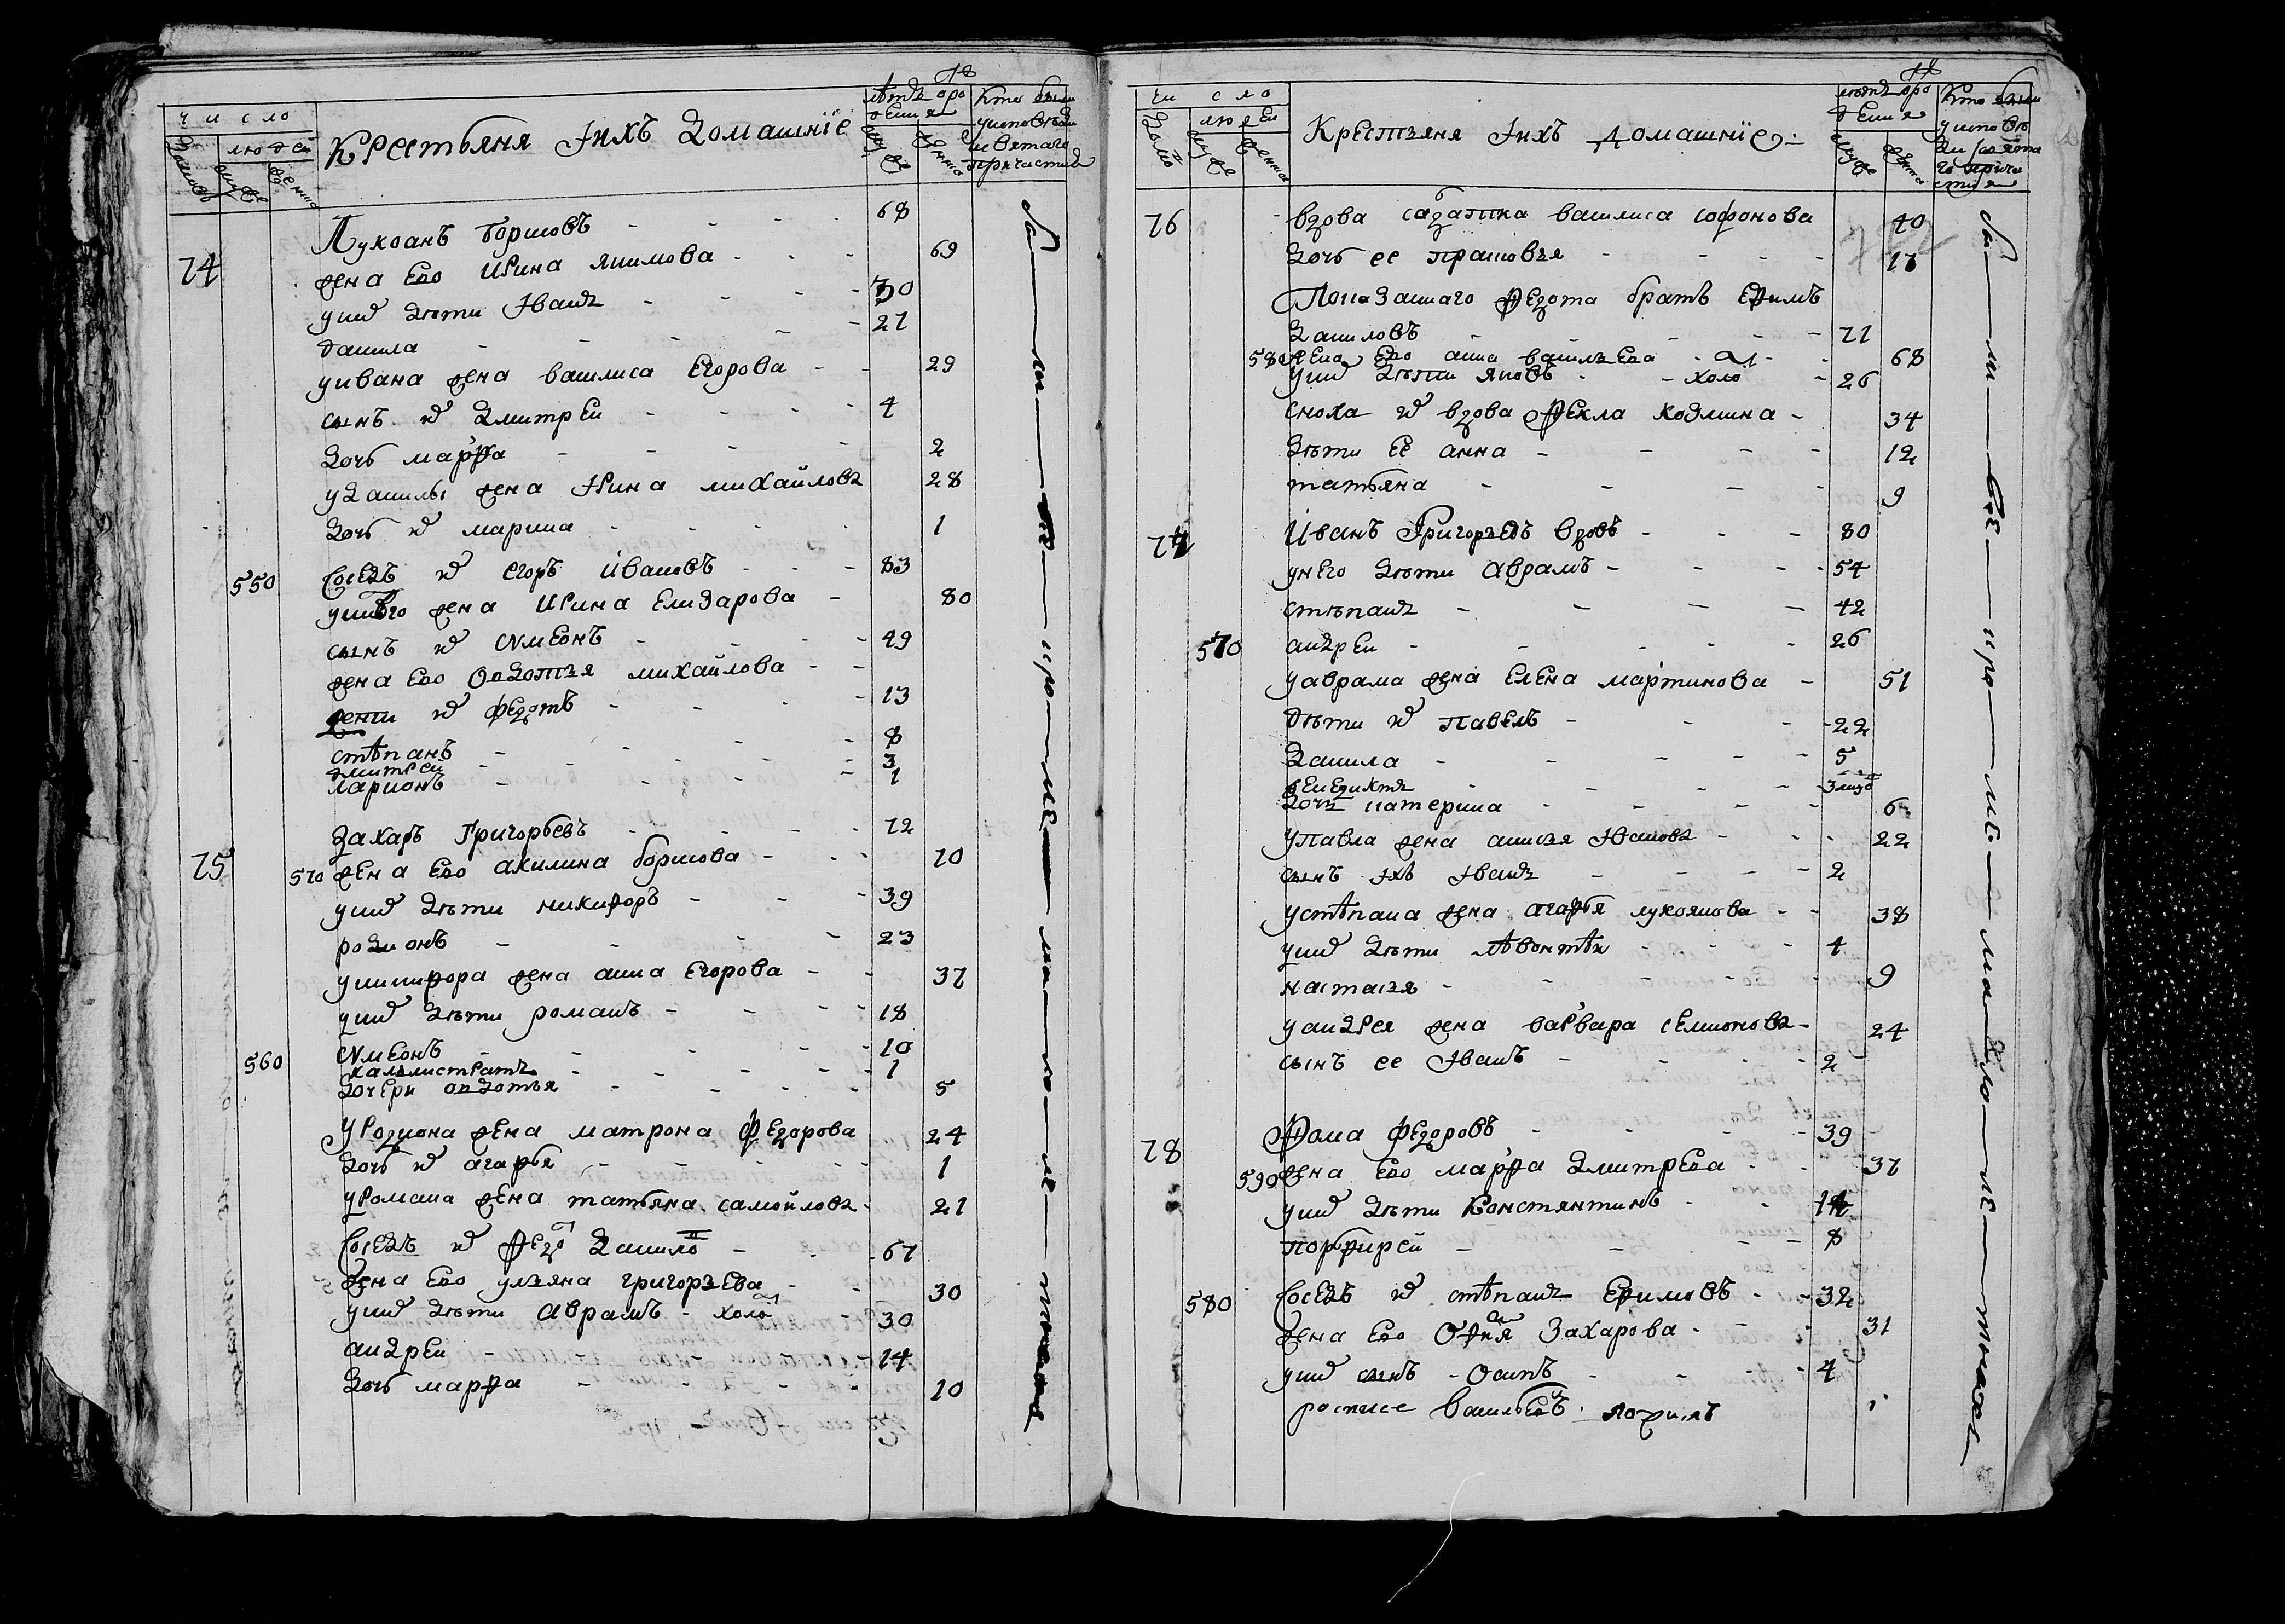 число
людей
Крестьяня ихъ домашнїе
лѣтъ отро
дения
Кто были
уисповѣди
исвятаго
причастия
74
Лукоянъ борисовъ 68
жена ево ирина якимова 69
унихъ дѣти иванъ 30
данила 27
уивана жена василиса егорова 29
сынъ их дмитреи 4
дочь марфа 2
уданилы жена ирина михайлова 28
дочь их марина 1
550 сосед их егоръ ивановъ 83
унего жена ирина елизарова 80
сынъ их симеонъ 49
жена ево овдотья михайлова
дети их федотъ 13
стѣпанъ 8
дмитреи 3
ларионъ 1
75
захаръ григорьевъ 72
570 жена ево акилина борисова 70
уних дѣти никифоръ 39
родионъ 23
уникифора жена анна егорова 37
уних дѣти романъ 18
560 симеонъ 10
каллистратъ 1
дочери овдотья 5
уродиона жена матрона федорова 24
дочь их агафья 1
уромана жена татьяна самойлова 21
сосед их федот данилов 67
жена ево ульяна григорьева 30
уних дѣти аврамъ холост 30
андреи 14
дочь марфа 10
число
людей
Крестьяня ихъ домашнїе
лѣтъ отро
дения
Кто были
уисповѣ
ди исвята
го прича
стия
76 вдова салдатка василиса софонова 40
дочь ее прасковья 17
Показаннаго федота братъ ефимъ
даниловъ 71
580 жена ево анна васильева 68
уних дѣти яковъ холост 26
сноха их вдова фекла козмина 34
дѣти ее анна 12
татьяна 9
77
иванъ григорьевъ вдовъ 80
унего дѣти аврамъ 54
стѣпанъ 42
570 андреи 26
уаврама жена елена мартинова 51
дѣти их павелъ 22
данила 5
венедиктъ
дочь катерина 6
упавла жена анисья иванова 22
сынъ ихъ иванъ 2
устѣпана жена агафья лукоянова 38
уних дѣти лѣвонтѣи 4
настасья 9
уандрея жена варвара семионова 24
сынъ ее иванъ 2
78
Фома федоровъ 39
590 жена ево марфа дмитрева 37
уних дѣти константинъ 14
порфирей 8
580 сосед их стѣпанъ ефимовъ 32
жена ево офимя захарова 31
уних сынъ осипъ 4